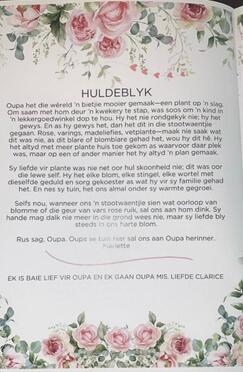 HULDEBLYK
Oupa het die wêreld 'n bietjie mooier gemaak—een plant op 'n slag.
Om saam met hom deur 'n kwekery te stap, was soos om 'n kind in
'n lekkergoedwinkel dop te hou. Hy het nie rondgekyk nie; hy het
gewys. En as hy gewys het, dan het dit in die stootwaentjie
gegaan. Rose, varings, madeliefies, vetplante—maak nie saak wat
dit was nie, as dit blare of blomblare gehad het, wou hy dit hê. Hy
het altyd met meer plante huis toe gekom as waarvoor daar plek
was, maar op een of ander manier het hy altyd 'n plan gemaak.
Sy liefde vir plante was nie net oor hul skoonheid nie; dit was oor
die lewe self. Hy het elke blom, elke stingel, elke wortel met
dieselfde geduld en sorg gekoester as wat hy vir sy familie gehad
het. En nes sy tuin, het ons almal onder sy warmte gegroei.
Selfs nou, wanneer ons 'n stootwaentjie sien wat oorloop van
blomme of die geur van vars rose ruik, sal ons aan hom dink. Sy
hande mag dalk nie meer in die grond wees nie, maar sy liefde bly
steeds in ons harte blom.
Rus sag, Oupa. Oupa se tuin hier sal ons aan Oupa herinner.
EK IS BAIE LIEF VIR OUPA EN EK GAAN OUPA MIS. LIEFDE CLARICE